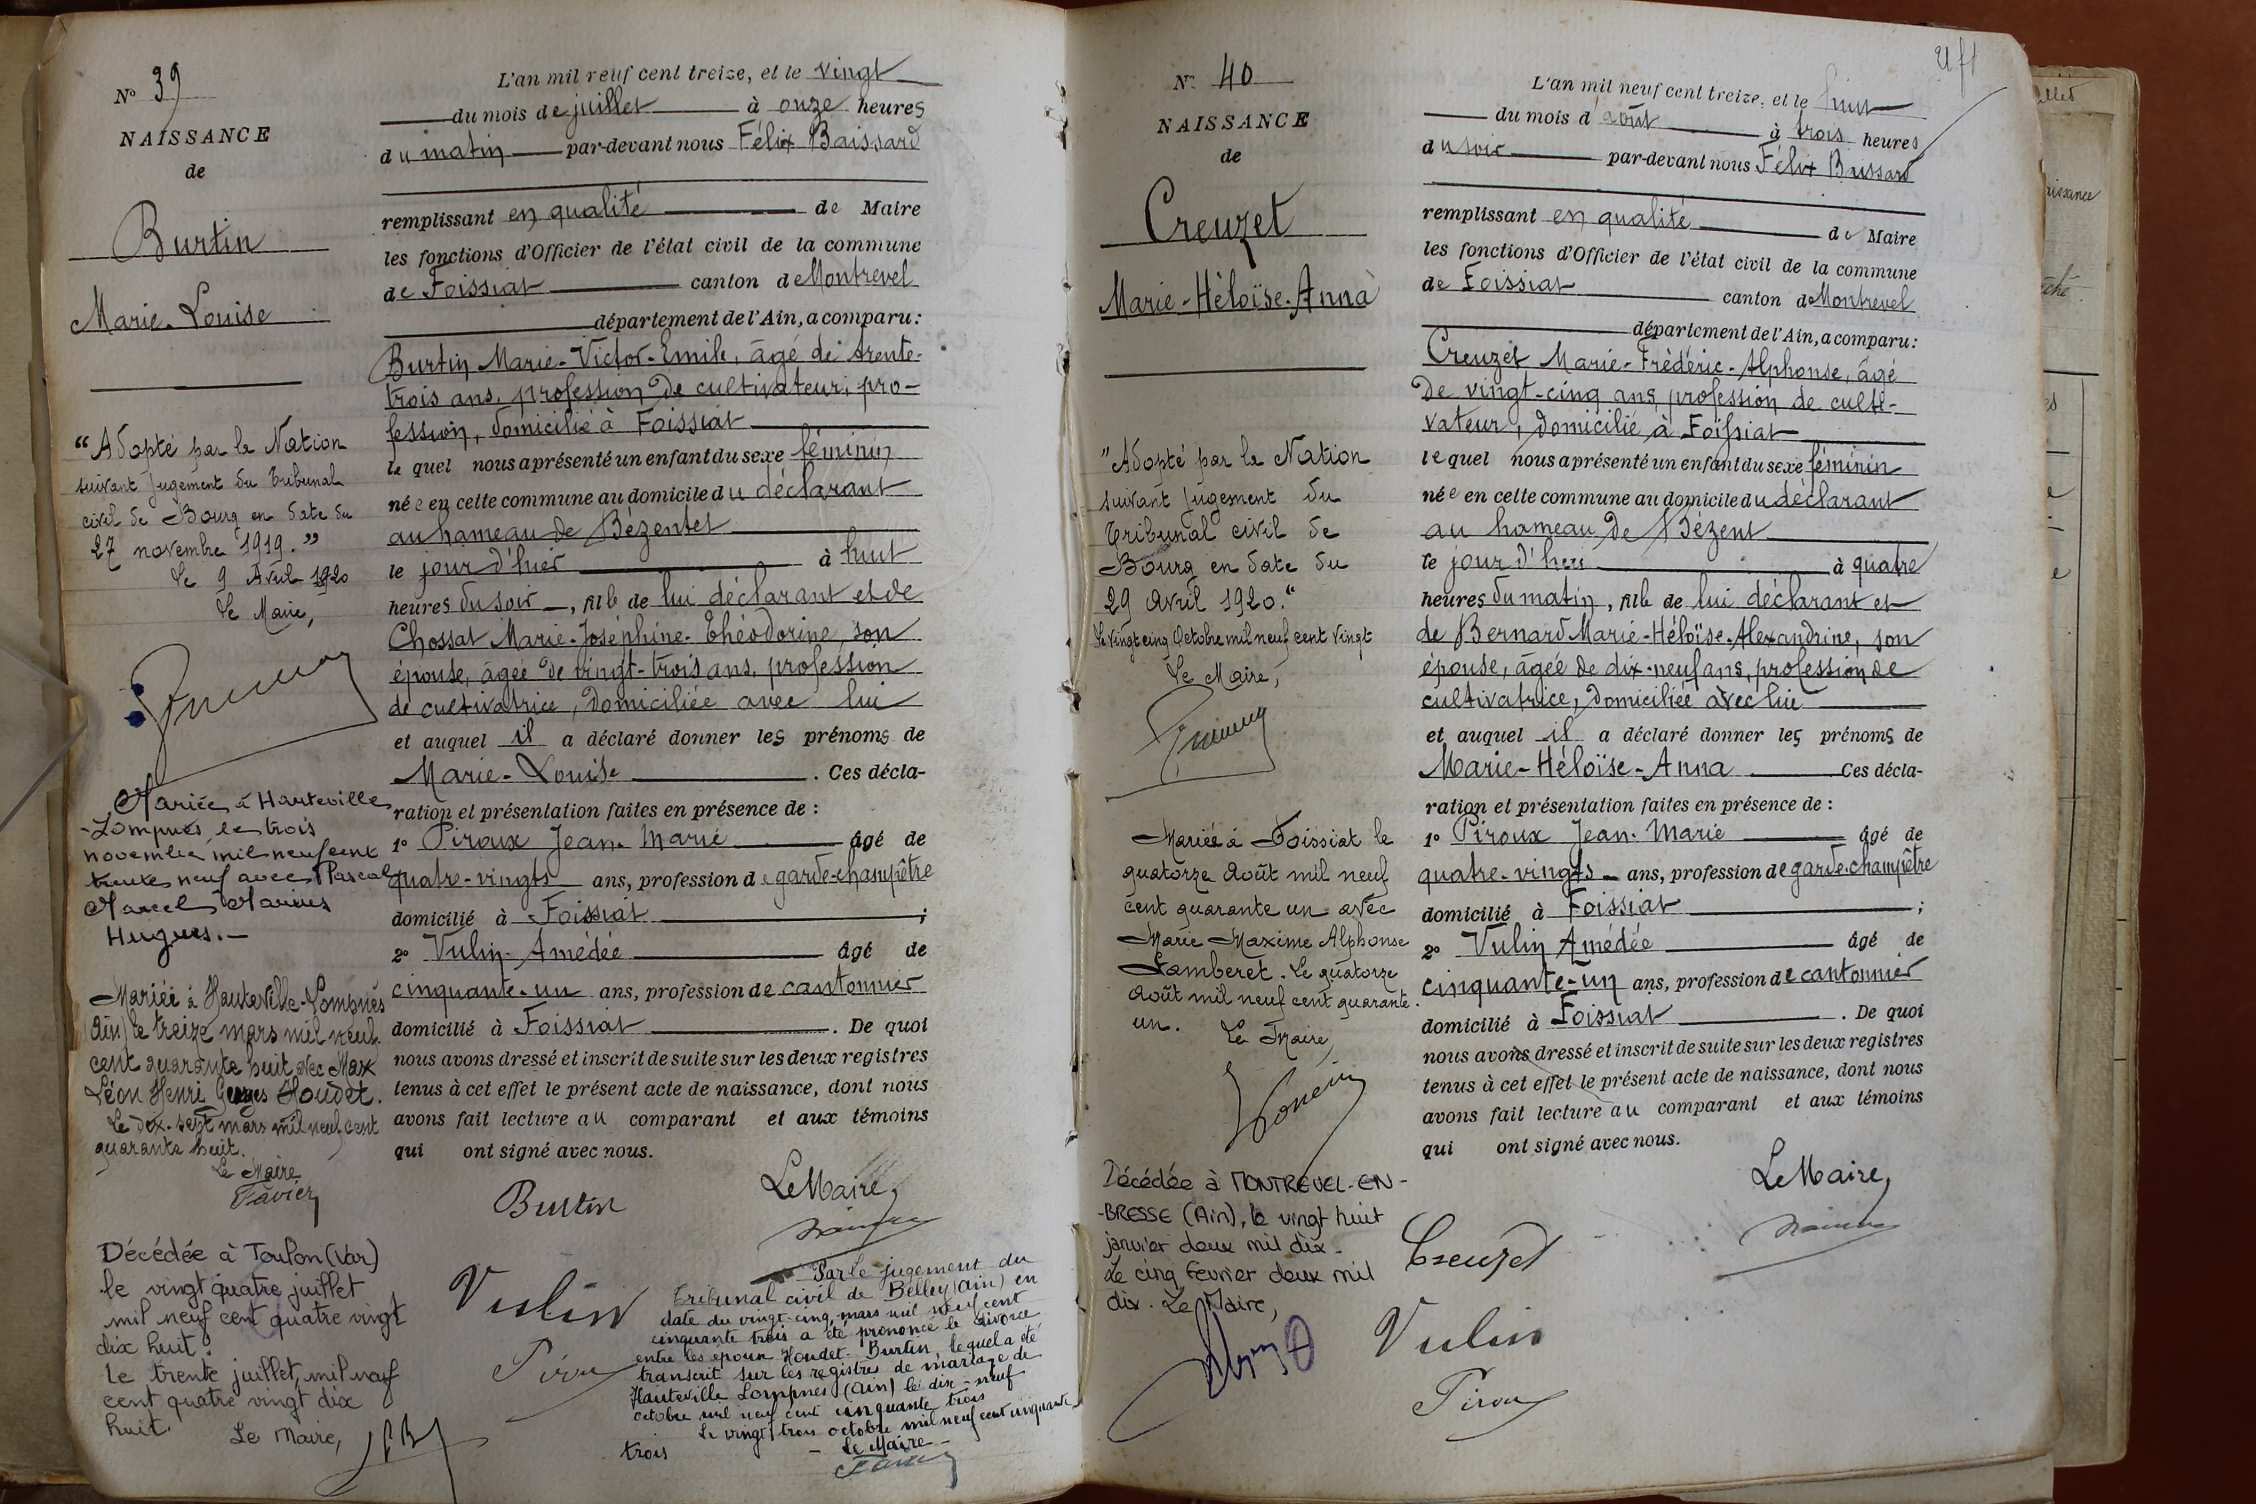 N° 39
NAISSANCE
de
Burtin
Marie-Louise
"Adopté par la Nation
suivant jugement du Tribunal
civil de Bourg en date du
27 novembre 1919."
Le 9 Avril 1920
Le Maire,
Mariée à Hauteville
-Lompnès le trois
novembre mil neuf cent
trente neuf avec Pascal
Marcel Marius
Hugues.-
Mariée à Hauteville-Lompnès
(Ain) le treize mars mil neuf
cent quarante huit avec Max
Léon Henri Georges Houdet.
Le dix-sept mars mil neuf cent
quarante huit.
Le Maire
Décédée à Toulon (Var)
le vingt quatre juillet
mil neuf cent quatre vingt
dix huit.
Le trente juillet, mil neuf
cent quatre vingt dix
huit.
Le Maire,
L'an mil neuf cent treize, et le vingt
du mois de juillet à onze heures
du matin par-devant nous Félix Baissard
remplissant en qualité de Maire
les fonctions d'Officier de l'état civil de la commune
de Foissiat canton de Montrevel
département de l'Ain, a comparu :
Burtin Marie-Victor-Emile, âgé de trente-
trois ans, profession de cultivateur, pro-
fession, domicilié à Foissiat
le quel nous a présenté un enfant du sexe féminin
née en cette commune au domicile du déclarant
au hameau de Bézentet
le jour d'hier à huit
heures du soir, fille de lui déclarant et de
Chossat Marie-Joséphine-Théodorine, son
épouse, âgée de vingt-trois ans, profession
de cultivatrice, domiciliée avec lui
et auquel il a déclaré donner les prénoms de
Marie-Louise. Ces décla-
ration et présentation faites en présence de :
1° Piroux Jean-Marie âgé de
quatre-vingts ans, profession de garde-champêtre
domicilié à Foissiat ;
2° Vulin Amédée âgé de
cinquante-un ans, profession de cantonnier
domicilié à Foissiat. De quoi
nous avons dressé et inscrit de suite sur les deux registres
tenus à cet effet le présent acte de naissance, dont nous
avons fait lecture au comparant et aux témoins
qui ont signé avec nous.
Le Maire,
Burtin
Vulin
Par le jugement du
tribunal civil de Belley (Ain) en
date du vingt-cinq mars mil neuf cent
cinquante trois a été prononcé le divorce
entre les époux Houdet-Burtin, lequel a été
transcrit sur les registres de mariage de
Hauteville Lompnes (Ain) le dix-neuf
octobre mil neuf cent cinquante trois
Le vingt trois octobre mil neuf cent cinquante
trois
Le Maire
N° 40
NAISSANCE
de
Creuzet
Marie-Héloïse-Anna
"Adopté par la Nation
suivant jugement du
Tribunal civil de
Bourg en date du
29 avril 1920."
Le vingt cinq Octobre mil neuf cent vingt
Le Maire,
Mariée à Foissiat le
quatorze août mil neuf
cent quarante un avec
Marie Maxime Alphonse
Lamberet. Le quatorze
août mil neuf cent quarante
un.
Le Maire,
Décédée à MONTREVEL-EN-
-BRESSE (Ain), le vingt huit
janvier deux mil dix.
Le cinq février deux mil
dix. Le Maire,
L'an mil neuf cent treize, et le huit
du mois d'août à trois heures
du soir par-devant nous Félix Baissard
remplissant en qualité de Maire
les fonctions d'Officier de l'état civil de la commune
de Foissiat canton de Montrevel
département de l'Ain, a comparu :
Creuzet Marie-Frédéric-Alphonse, âgé
de vingt-cinq ans, profession de culti-
vateur, domicilié à Foissiat
le quel nous a présenté un enfant du sexe féminin
née en cette commune au domicile du déclarant
au hameau de Bézent
le jour d'hier à quatre
heures du matin, fille de lui déclarant et
de Bernard Marie-Héloïse-Alexandrine, son
épouse, âgée de dix-neuf ans, profession de
cultivatrice, domiciliée avec lui
et auquel il a déclaré donner les prénoms de
Marie-Héloïse-Anna Ces décla-
ration et présentation faites en présence de :
1° Piroux Jean-Marie âgé de
quatre-vingts ans, profession de garde-champêtre
domicilié à Foissiat ;
2° Vulin Amédée âgé de
cinquante-un ans, profession de cantonnier
domicilié à Foissiat. De quoi
nous avons dressé et inscrit de suite sur les deux registres
tenus à cet effet le présent acte de naissance, dont nous
avons fait lecture au comparant et aux témoins
qui ont signé avec nous.
Le Maire,
Creuzet
Vulin